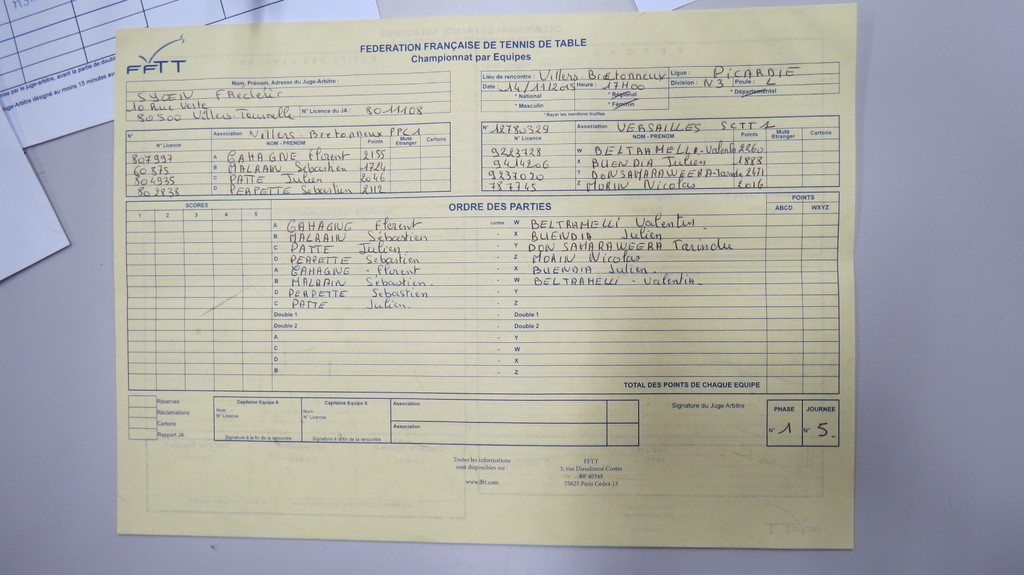 FFTT
FEDERATION FRANÇAISE DE TENNIS DE TABLE
Championnat par Equipes
Nom, Prénom, Adresse du Juge-Arbitre :
SYOEN FREderic
10 Rue Verte
80500 Villers-Tournelle N° Licence du JA : 8011108
Lieu de rencontre : Villers-Bretonneux Ligue : PiCARDiE
Date 14/11/2015 Heure : 17H00 Division : N3 Poule :
* National * Régional * Départemental
* Masculin * Féminin
* Rayer les mentions inutiles
N° Association Villers-Bretonneux PPC 1
N° Licence NOM - PRENOM Points Muté Etranger Cartons
807997 A GAHAGNE Florent 2155
60875 B MALRAiN Sébastien 1724
804935 C PATTE Julien 2046
802838 D PERPETTE Sebastien 2112
N° 12780329 Association VERSAiLLES SCTT 1
N° Licence NOM - PRENOM Points Muté Etranger Cartons
9223728 W BELTRAMELLi-Valentin 2260
9414206 X BUENDIA Julien 1888
9237020 Y DON SAMARAWEERA-Tarindu 2471
787745 Z MORiN Nicolas 2016
SCORES ORDRE DES PARTIES POINTS
1 2 3 4 5 ABCD WXYZ
A GAHAGNE Florent contre W BELTRAMELLi Valentin
B MALRAiN Sébastien - X BUENDiA Julien
C PATTE Julien - Y DON SAMARAWEERA Tarindu
D PERPETTE Sebastien - Z MORiN Nicolas
A GAHAGNE - Florent - X BUENDIA Julien.
B MALRAiN Sébastien. - W BELTRAMELLi - Valentin.
D PERPETTE Sebastien - Y
C PATTE Julien. - Z
Double 1 - Double 1
Double 2 - Double 2
A - Y
C - W
D - X
B - Z
TOTAL DES POINTS DE CHAQUE EQUIPE
Réserves
Réclamations
Cartons
Rapport JA
Capitaine Equipe A
Nom
N° Licence
Signature à la fin de la rencontre
Capitaine Equipe X
Nom
N° Licence
Signature à la fin de la rencontre
Association
Association
Signature du Juge Arbitre
PHASE JOURNEE
N° 1 N° 5.
Toutes les informations
sont disponibles sur :
www.fftt.com
FFTT
3, rue Dieudonné Costes
BP 40348
75625 Paris Cedex 13